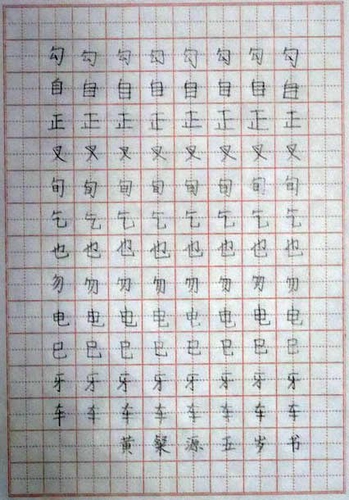 勾勾勾勾勾勾勾勾
自自自自自自自自
正正正正正正正正
叉叉叉叉叉叉叉叉
旬旬旬旬旬旬旬旬
乞乞乞乞乞乞乞乞
也也也也也也也也
勿勿勿勿勿勿勿勿
电电电电电电电电
巳巳巳巳巳巳巳巳
牙牙牙牙牙牙牙牙
车车车车车车车车
黄粲源五岁书